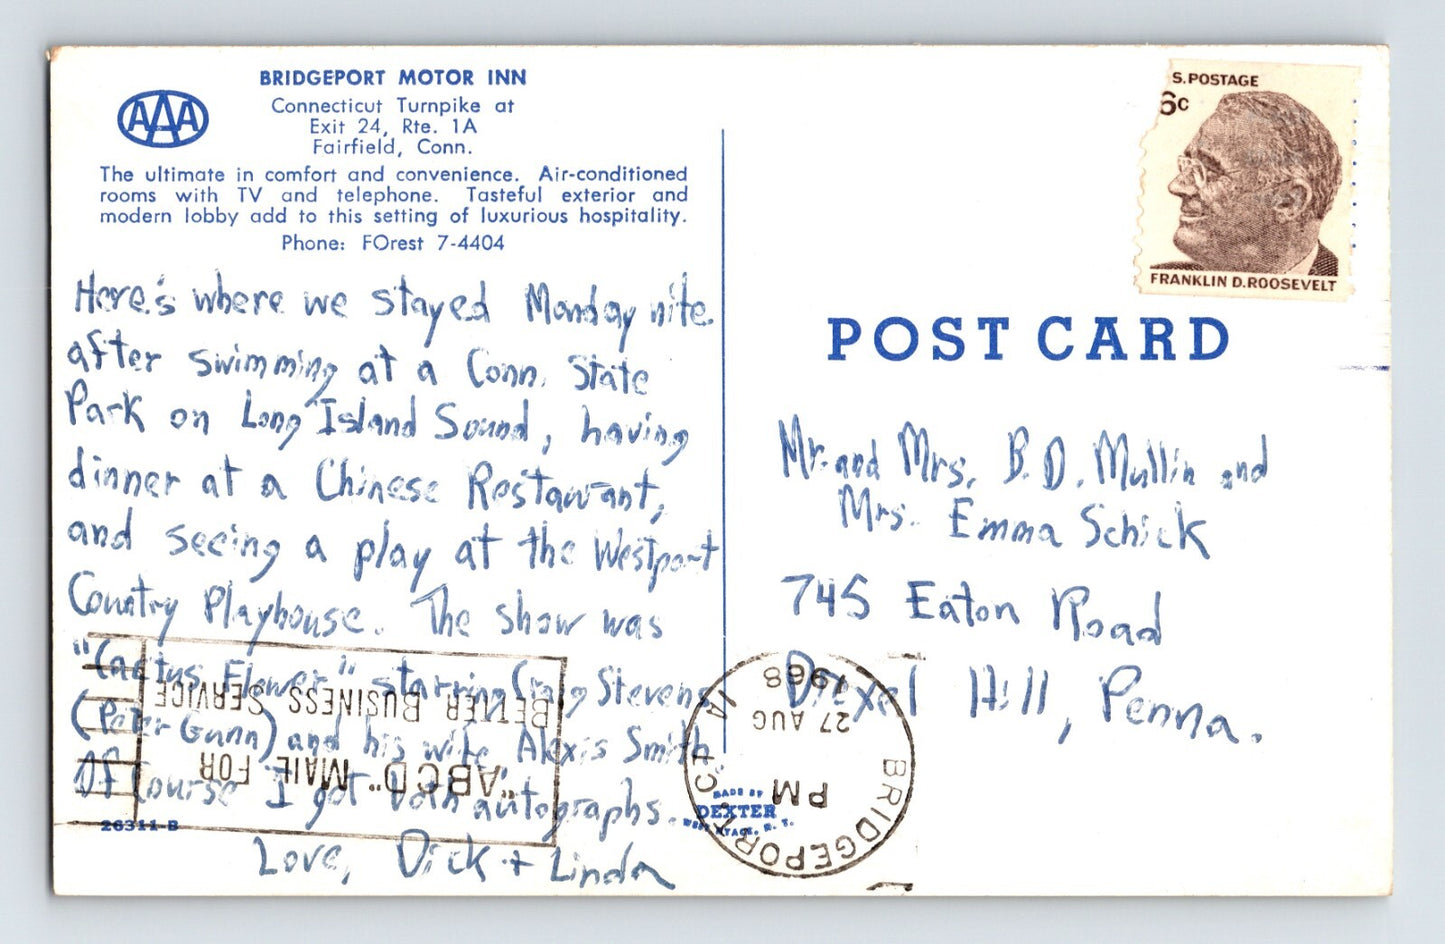 BRIDGEPORT MOTOR INN
AAA
Connecticut Turnpike at
Exit 24, Rte. 1A
Fairfield, Conn.
The ultimate in comfort and convenience. Air-conditioned
rooms with TV and telephone. Tasteful exterior and
modern lobby add to this setting of luxurious hospitality.
Phone: FOrest 7-4404
Here's where we stayed Monday nite
after swimming at a Conn. State
Park on Long Island Sound, having
dinner at a Chinese Restaurant,
and seeing a play at the Westport
Country Playhouse. The show was
"Cactus Flower" starring Craig Stevens
(Peter Gunn) and his wife, Alexis Smith.
Of Course I got both autographs.
Love, Dick + Linda
26311-B
"ABCD" MAIL FOR
BETTER BUSINESS SERVICE
S. POSTAGE
6c
FRANKLIN D. ROOSEVELT
POST CARD
Mr. and Mrs. B. D. Mullin and
Mrs. Emma Schick
745 Eaton Road
Drexel Hill, Penna.
BRIDGEPORT, CT.
PM
27 AUG
1968
MADE BY
DEXTER
WEST NYACK, N. Y.